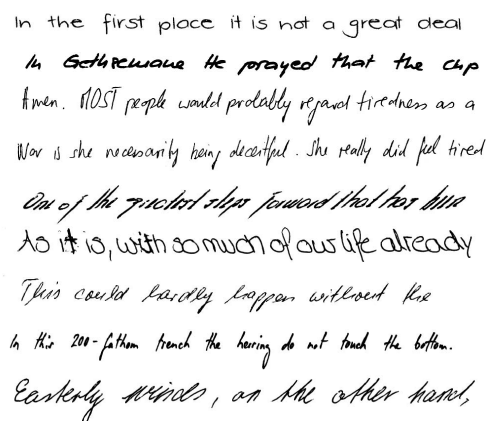 In the first place it is not a great deal
In Gethsemane He prayed that the cup
Amen. MOST people would probably regard tiredness as a
Nor is she necessarily being deceitful. She really did feel tired
One of the greatest steps forward that has been
As it is, with so much of our life already
This could hardly happen without the
In this 200-fathom trench the herring do not touch the bottom.
Easterly winds, on the other hand,